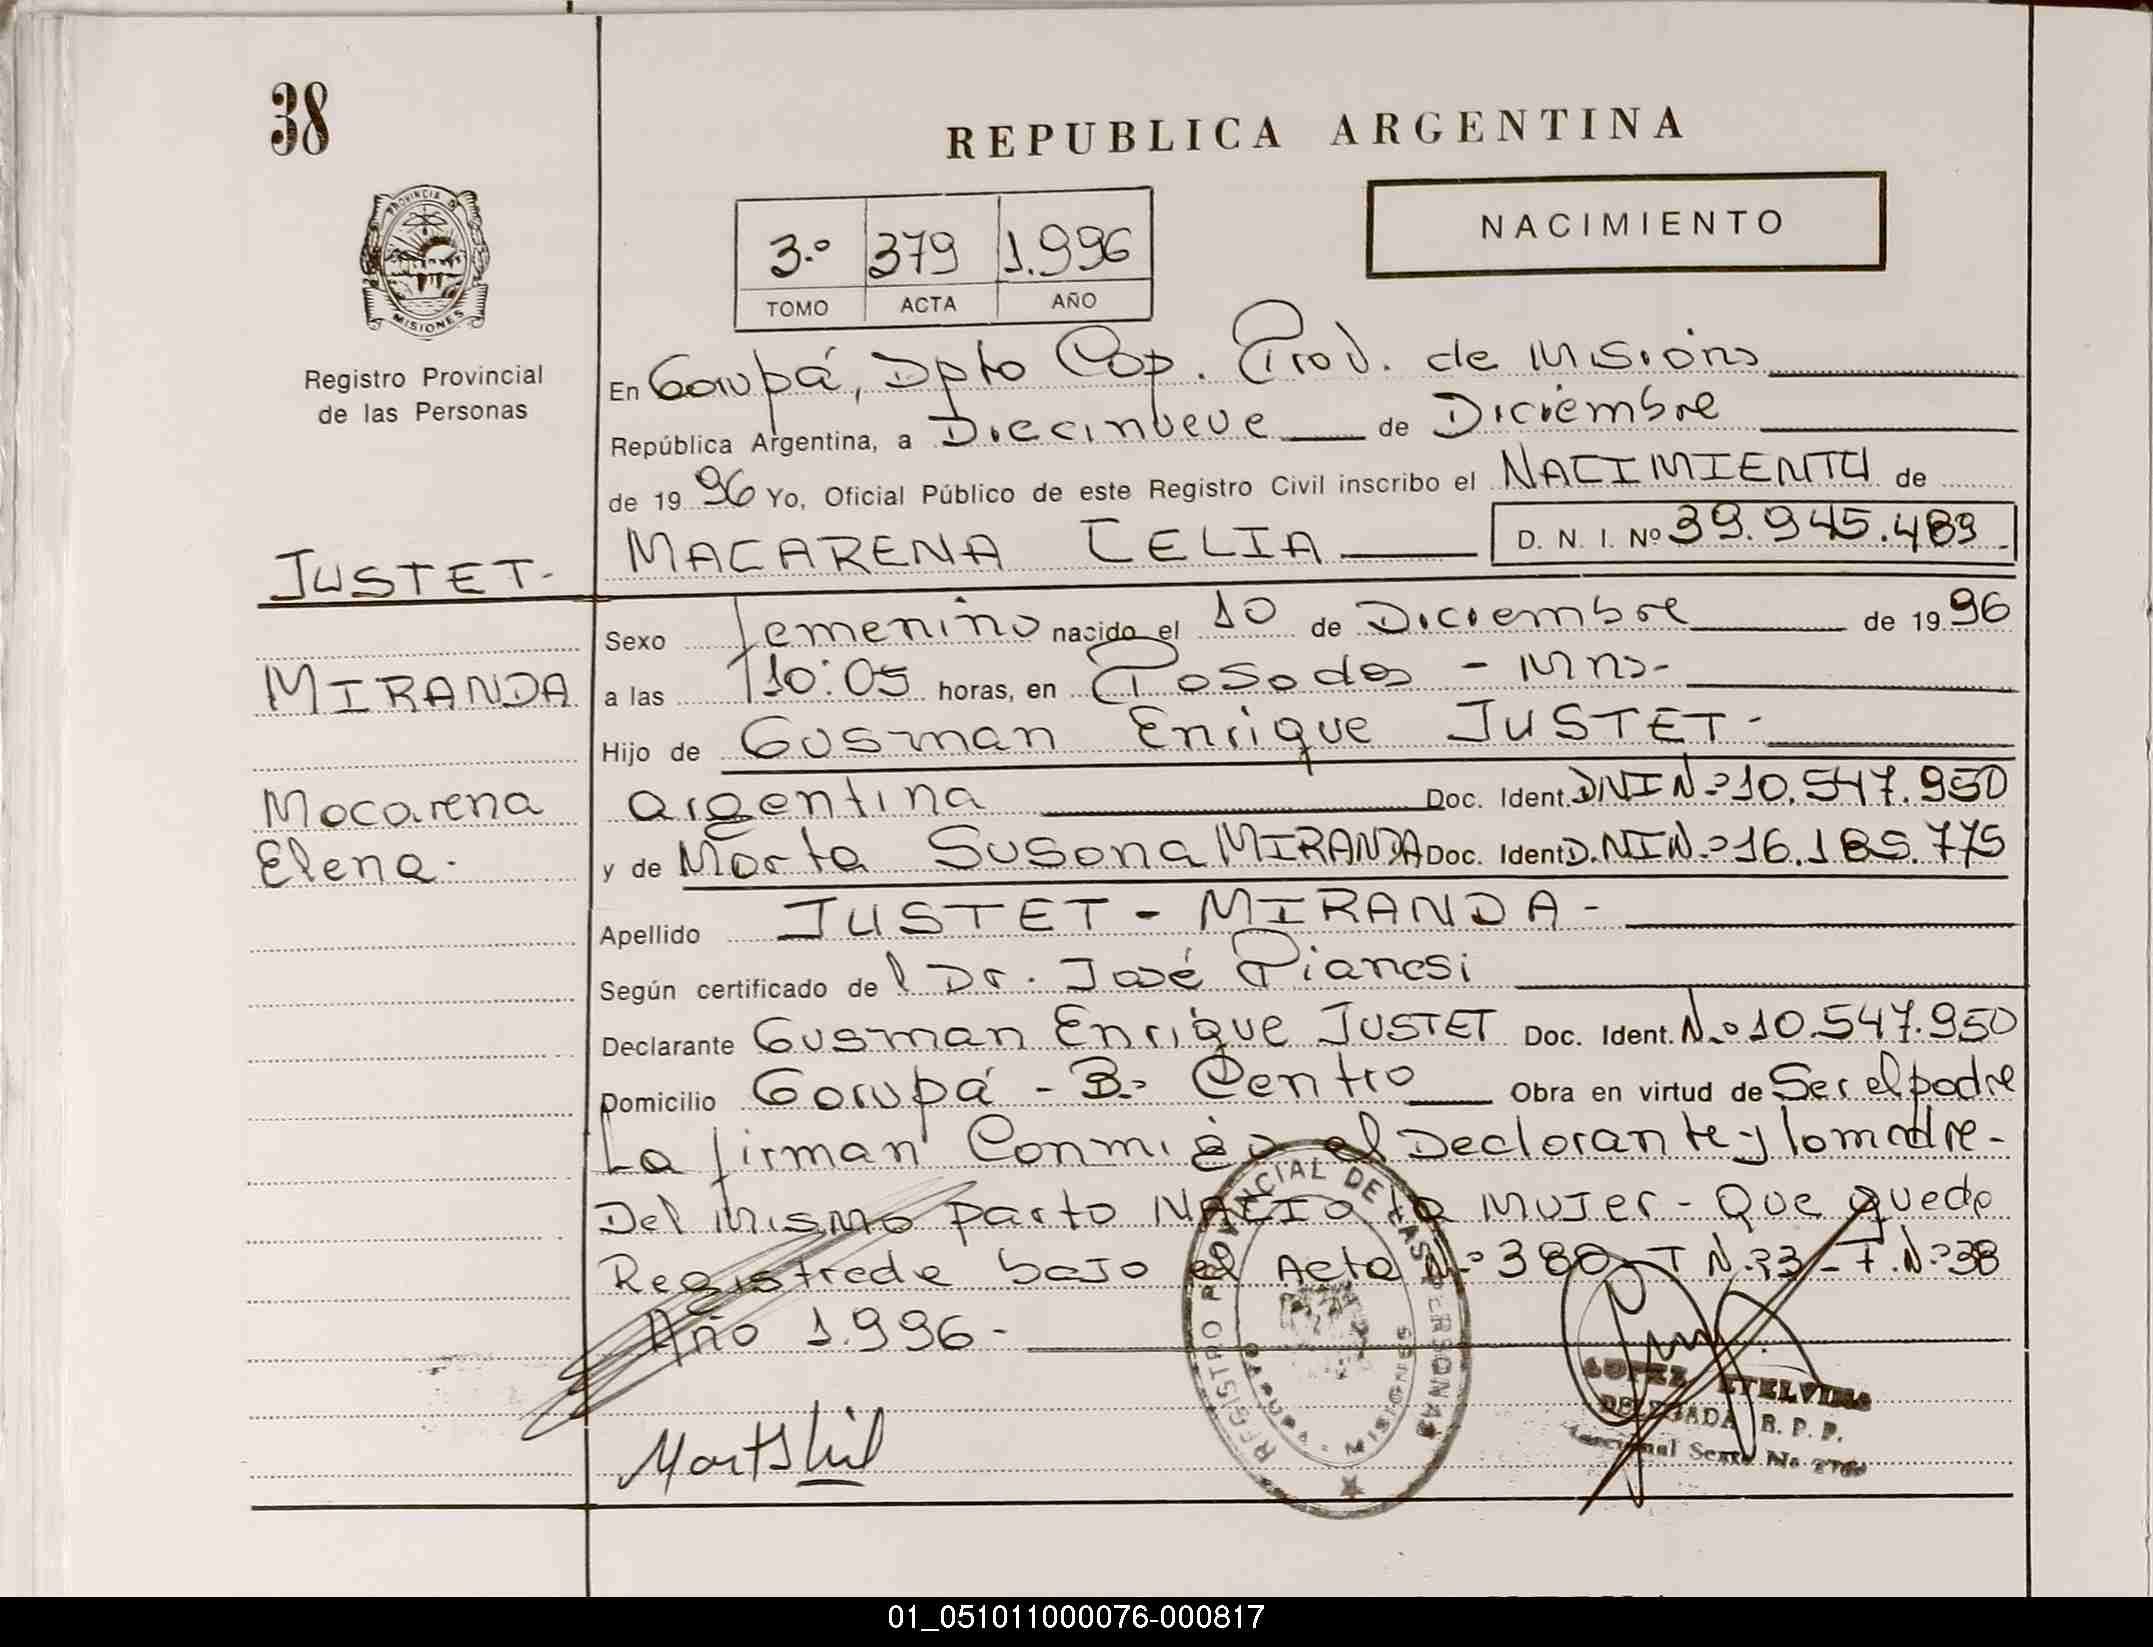 38
REPUBLICA ARGENTINA
PROVINCIA DE
MISIONES
Registro Provincial
de las Personas
NACIMIENTO
3.º 379 1.996
TOMO ACTA AÑO
En Garupá, Dpto Cap. Prov. de Misions
República Argentina, a Diecinueve de Diciembre
de 1996 Yo, Oficial Público de este Registro Civil inscribo el NACIMIENTO de
JUSTET- MACARENA CELIA D. N. I. Nº 39.945.489
Sexo femenino nacido el 10 de Diciembre de 1996
MIRANDA a las 10:05 horas, en Posadas - Mns-
Hijo de Gusman Enrique JUSTET-
Macarena argentina Doc. Ident. DNI Nº 10.547.950
Elena. y de Marta Susana MIRANDA Doc. Ident D.NI N.º 16.185.775
Apellido JUSTET - MIRANDA -
Según certificado del Dr. José Pianesi
Declarante Gusman Enrique JUSTET Doc. Ident. N.º 10.547.950
Domicilio Garupá - B.º Centro Obra en virtud de Ser el padre
La firman Conmigo el Declarante y la madre-
Del mismo parto NACIO la Mujer - Que queda
Registrada bajo el Acta N.º 380 - T N.º 3 - F. N.º 38
Año 1.996-
REGISTRO PROVINCIAL DE LAS PERSONAS
MISIONES
LOPEZ ETELVINA
DELEGADA R. P. P.
01_051011000076-000817